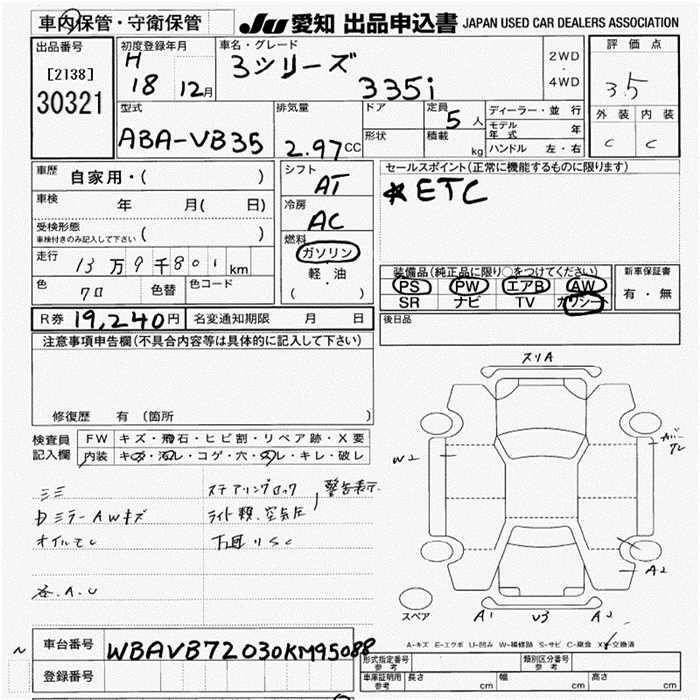 車内保管・守衛保管
JU 愛知 出品申込書 JAPAN USED CAR DEALERS ASSOCIATION
出品番号
[2138]
30321
初度登録年月
H
18 12月
車名・グレード
3シリーズ
335i
2WD
・
4WD
評価点
3.5
外装 内装
C C
型式
ABA-VB35
排気量
2.97CC
ドア
形状
定員
5人
積載
kg
ディーラー・並行
モデル年式 年
ハンドル 左・右
車歴 自家用・( )
車検 年 月( 日)
受検形態
車検付きのみ記入して下さい ( )
走行 13万9千801km
色 クロ 色替 色コード
シフト
AT
冷房
AC
燃料
ガソリン
軽・油
( )
セールスポイント(正常に機能するものに限ります)
*ETC
装備品(純正品に限り○をつけてください)
PS PW エアB AW
SR ナビ TV カワシート
新車保証書
有・無
R券 19,240円 名変通知期限 月 日
後日品
注意事項申告欄(不具合内容等は具体的に記入して下さい)
修復歴 有 (箇所 )
検査員
記入欄
FW キズ・飛石・ヒビ割・リペア跡・X要
内装 キズ・汚レ・コゲ・穴・スレ・キレ・破レ
ミミ ステアリングロック 警告表示
ミラーAWキズ ライト類、空気圧
オイルモレ 下回りSC
各.A.U
スリA
W2
A2
スペア
A1 U3 A2
A-キズ E-エクボ U-凹み W-補修跡 S-サビ C-腐食 X-交換済
車台番号 WBAVB72030KM95088
登録番号
形式指定番号
参考
類別区分番号
参考
車庫証明用
参考
長さ cm 幅 cm 高さ cm